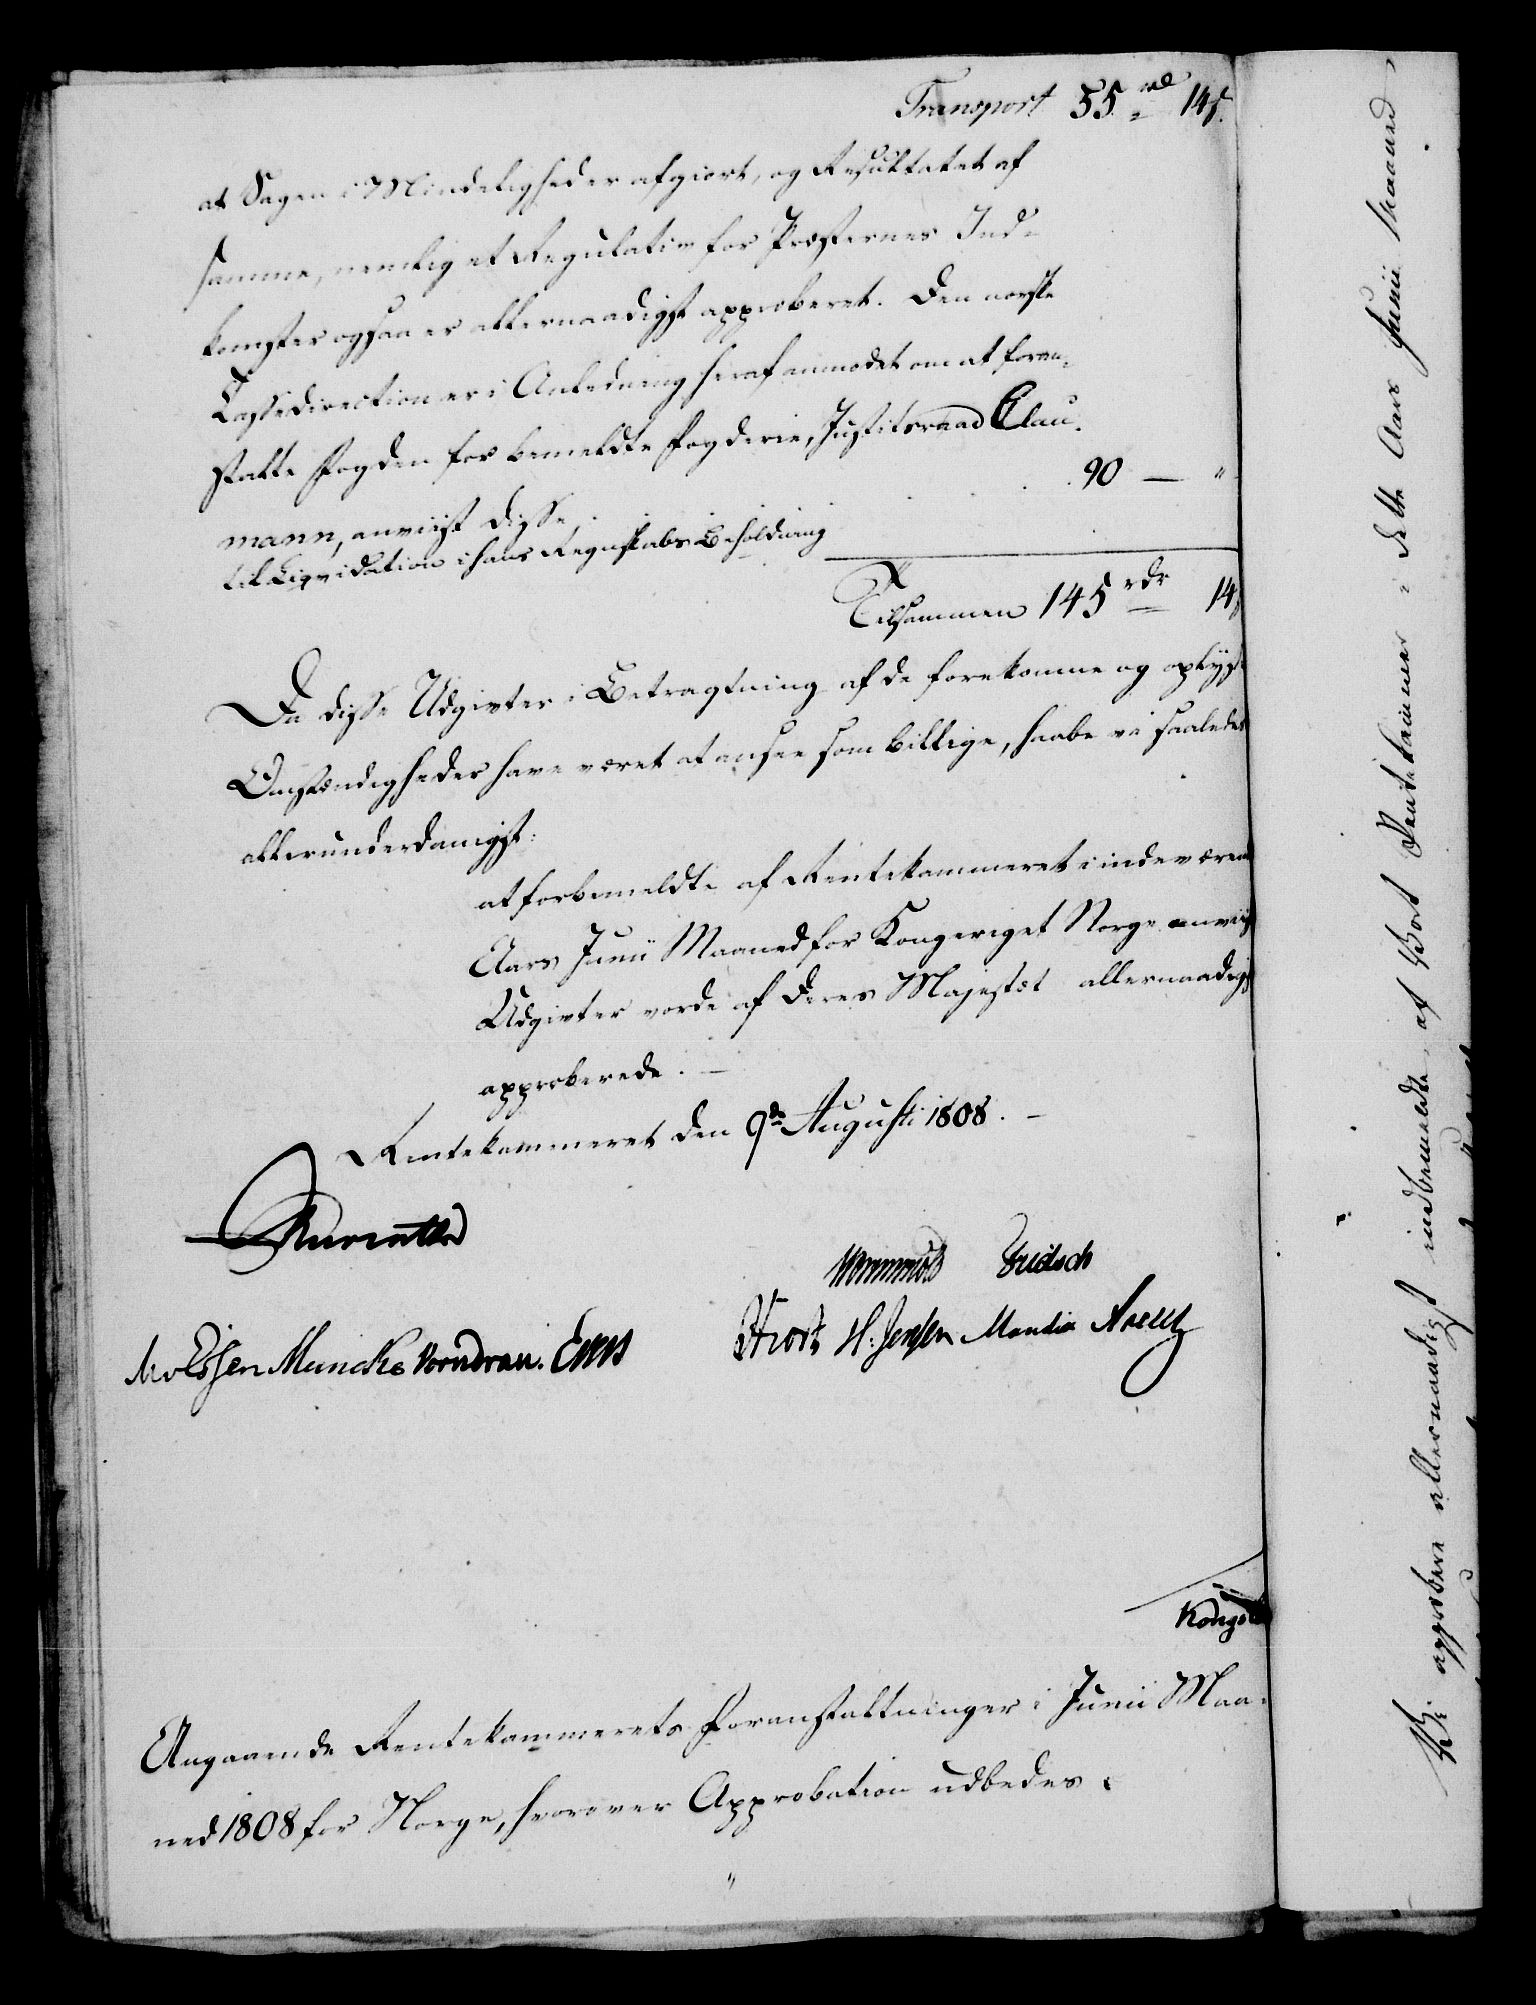 Transport 55 rdl 14 s.
at Sagen i Mindelighed er afgiort, og Resultatet af
samme, nemlig et Regulativ for Præsternes Ind-
komster ogsaa er allernaadigst approberet. Den norske
Casse direction er i Anledning heraf anmodet om at foran-
stalte Fogden for bemeldte Fogderie, Justitsraad Clau-
mann, anviist disse,
til Liqvidation i hans Regnskabs Beholdning
90 — "
Tilsammen 145 rdr 14 s
Da disse Udgivter i Betragtning af de forekomne og oplyste
Omstændigheder have været at ansee som billige, haabe vi saaledes
allerunderdanigst:
at forbemeldte af Rentekammeret i indeværende
Aars Junii Maaned for Kongeriget Norge anviiste
Udgivter vorde af Deres Majestæt allernaadigst
approberede. —
Rentekammeret den 9de Augusti 1808. —
Wormskiold Fridsch
M v Essen Muncke Vorndran.
Hiort H: Jensen
Kongel
Angaaende Rentekammerets Foranstaltninger i Junii Maa-
ned 1808 for Norge, hvorover Approbation udbedes.
"
Vi approbere allernaadigst indbemeldte af Vort Rentekammer i dette Aars Junii Maaned